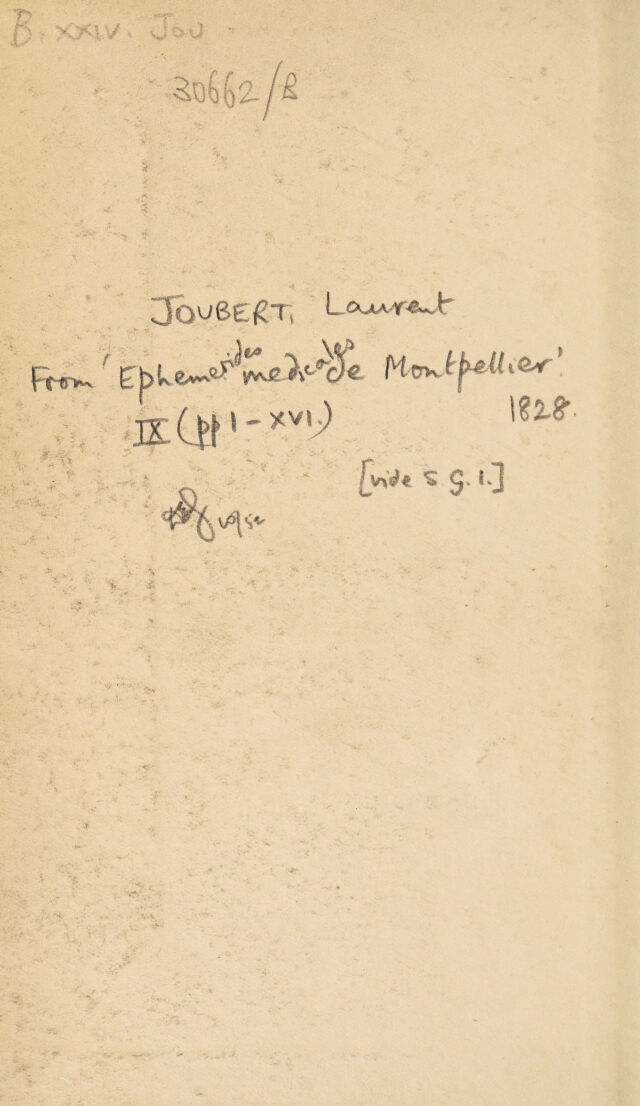 B. XXIV. Jou
30662/B
JOUBERT, Laurent
From 'Ephemerides medicales de Montpellier'
IX (pp I - XVI.) 1828.
[vide S. G. I.]